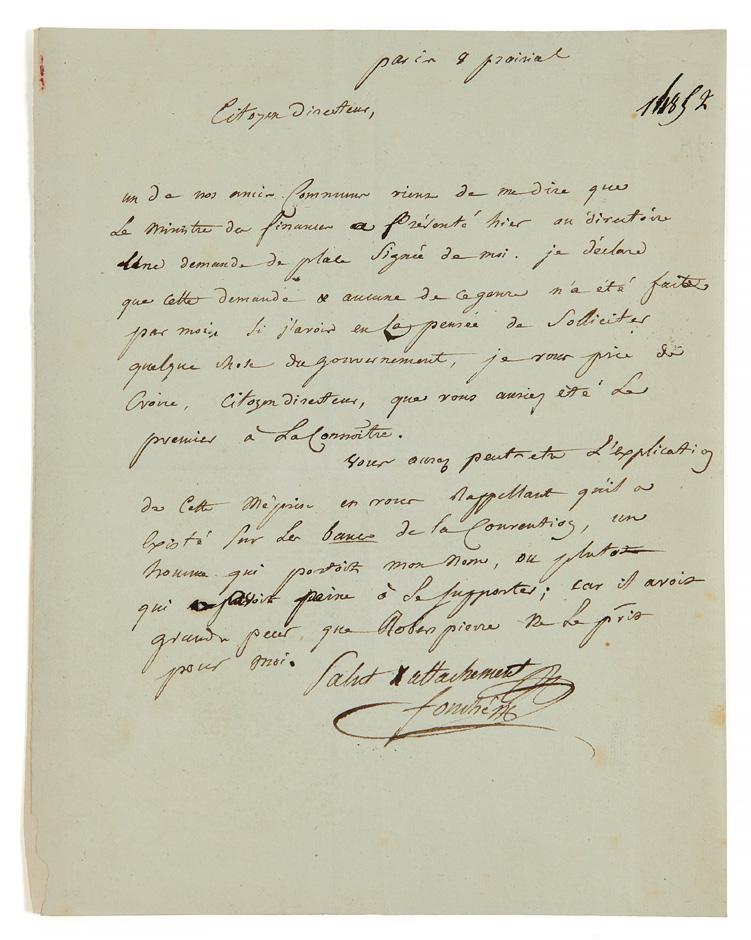 paris 8 prairial
14852
Citoyen directeur,
un de nos amis Communs viens de me dire que
Le Ministre des finances a présenté hier au directoire
Une demande de place Signée de moi. je déclare
que cette demande & aucune de ce genre n'a été faite
par moi. Si j'avois eu la pensée de Solliciter
quelque chose du gouvernement, je vous prie de
Croire, Citoyen directeur, que vous auriez été Le
premier à La Connoître.
Vous aurez peutetre L'explication
de Cette Méprise en vous Rappellant qu'il a
Existé Sur Les bancs de la Convention, un
homme qui portoit mon nom, ou plutot
qui avoit peine à Le Supporter; car il avoit
grande peur que Robespierre Ne Le prît
pour moi.
Salut & attachement
fouché